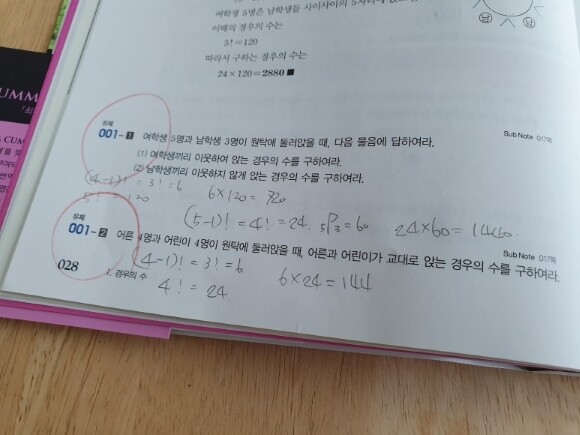 여학생 5명은 남학생들 사이사이의 5자리에
이때의 경우의 수는
5! = 120
따라서 구하는 경우의 수는
24 × 120 = 2880 ■
남
남
유제
001-1 여학생 5명과 남학생 3명이 원탁에 둘러앉을 때, 다음 물음에 답하여라.
Sub Note 017쪽
(1) 여학생끼리 이웃하여 앉는 경우의 수를 구하여라.
(2) 남학생끼리 이웃하지 않게 앉는 경우의 수를 구하여라.
(4-1)! = 3! = 6
5! = 120
6×120 = 720
(5-1)! = 4! = 24. 5P3 = 60
24×60 = 1440.
유제
001-2 어른 4명과 어린이 4명이 원탁에 둘러앉을 때, 어른과 어린이가 교대로 앉는 경우의 수를 구하여라.
Sub Note 017쪽
(4-1)! = 3! = 6
4! = 24
6×24 = 144
028
1. 경우의 수
SUMM
A CUM